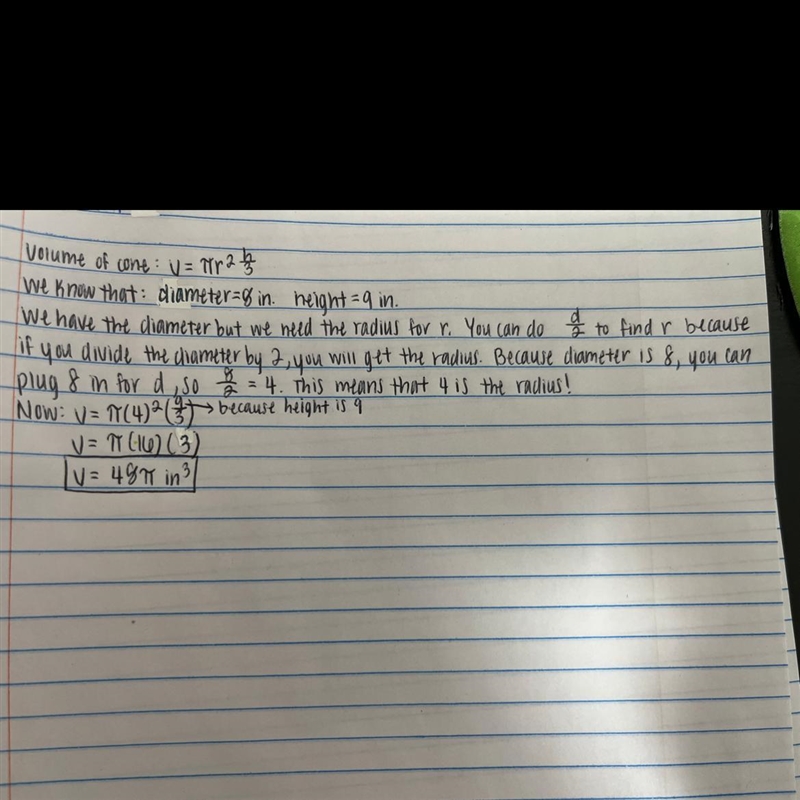 Volume of cone: V = πr² h/3
We know that: diameter=8 in. height=9 in.
We have the diameter but we need the radius for r. You can do d/2 to find r because
if you divide the diameter by 2, you will get the radius. Because diameter is 8, you can
plug 8 in for d, so 8/2 = 4. This means that 4 is the radius!
Now: V = π(4)²(9/3) → because height is 9
V = π(16)(3)
V = 48π in³